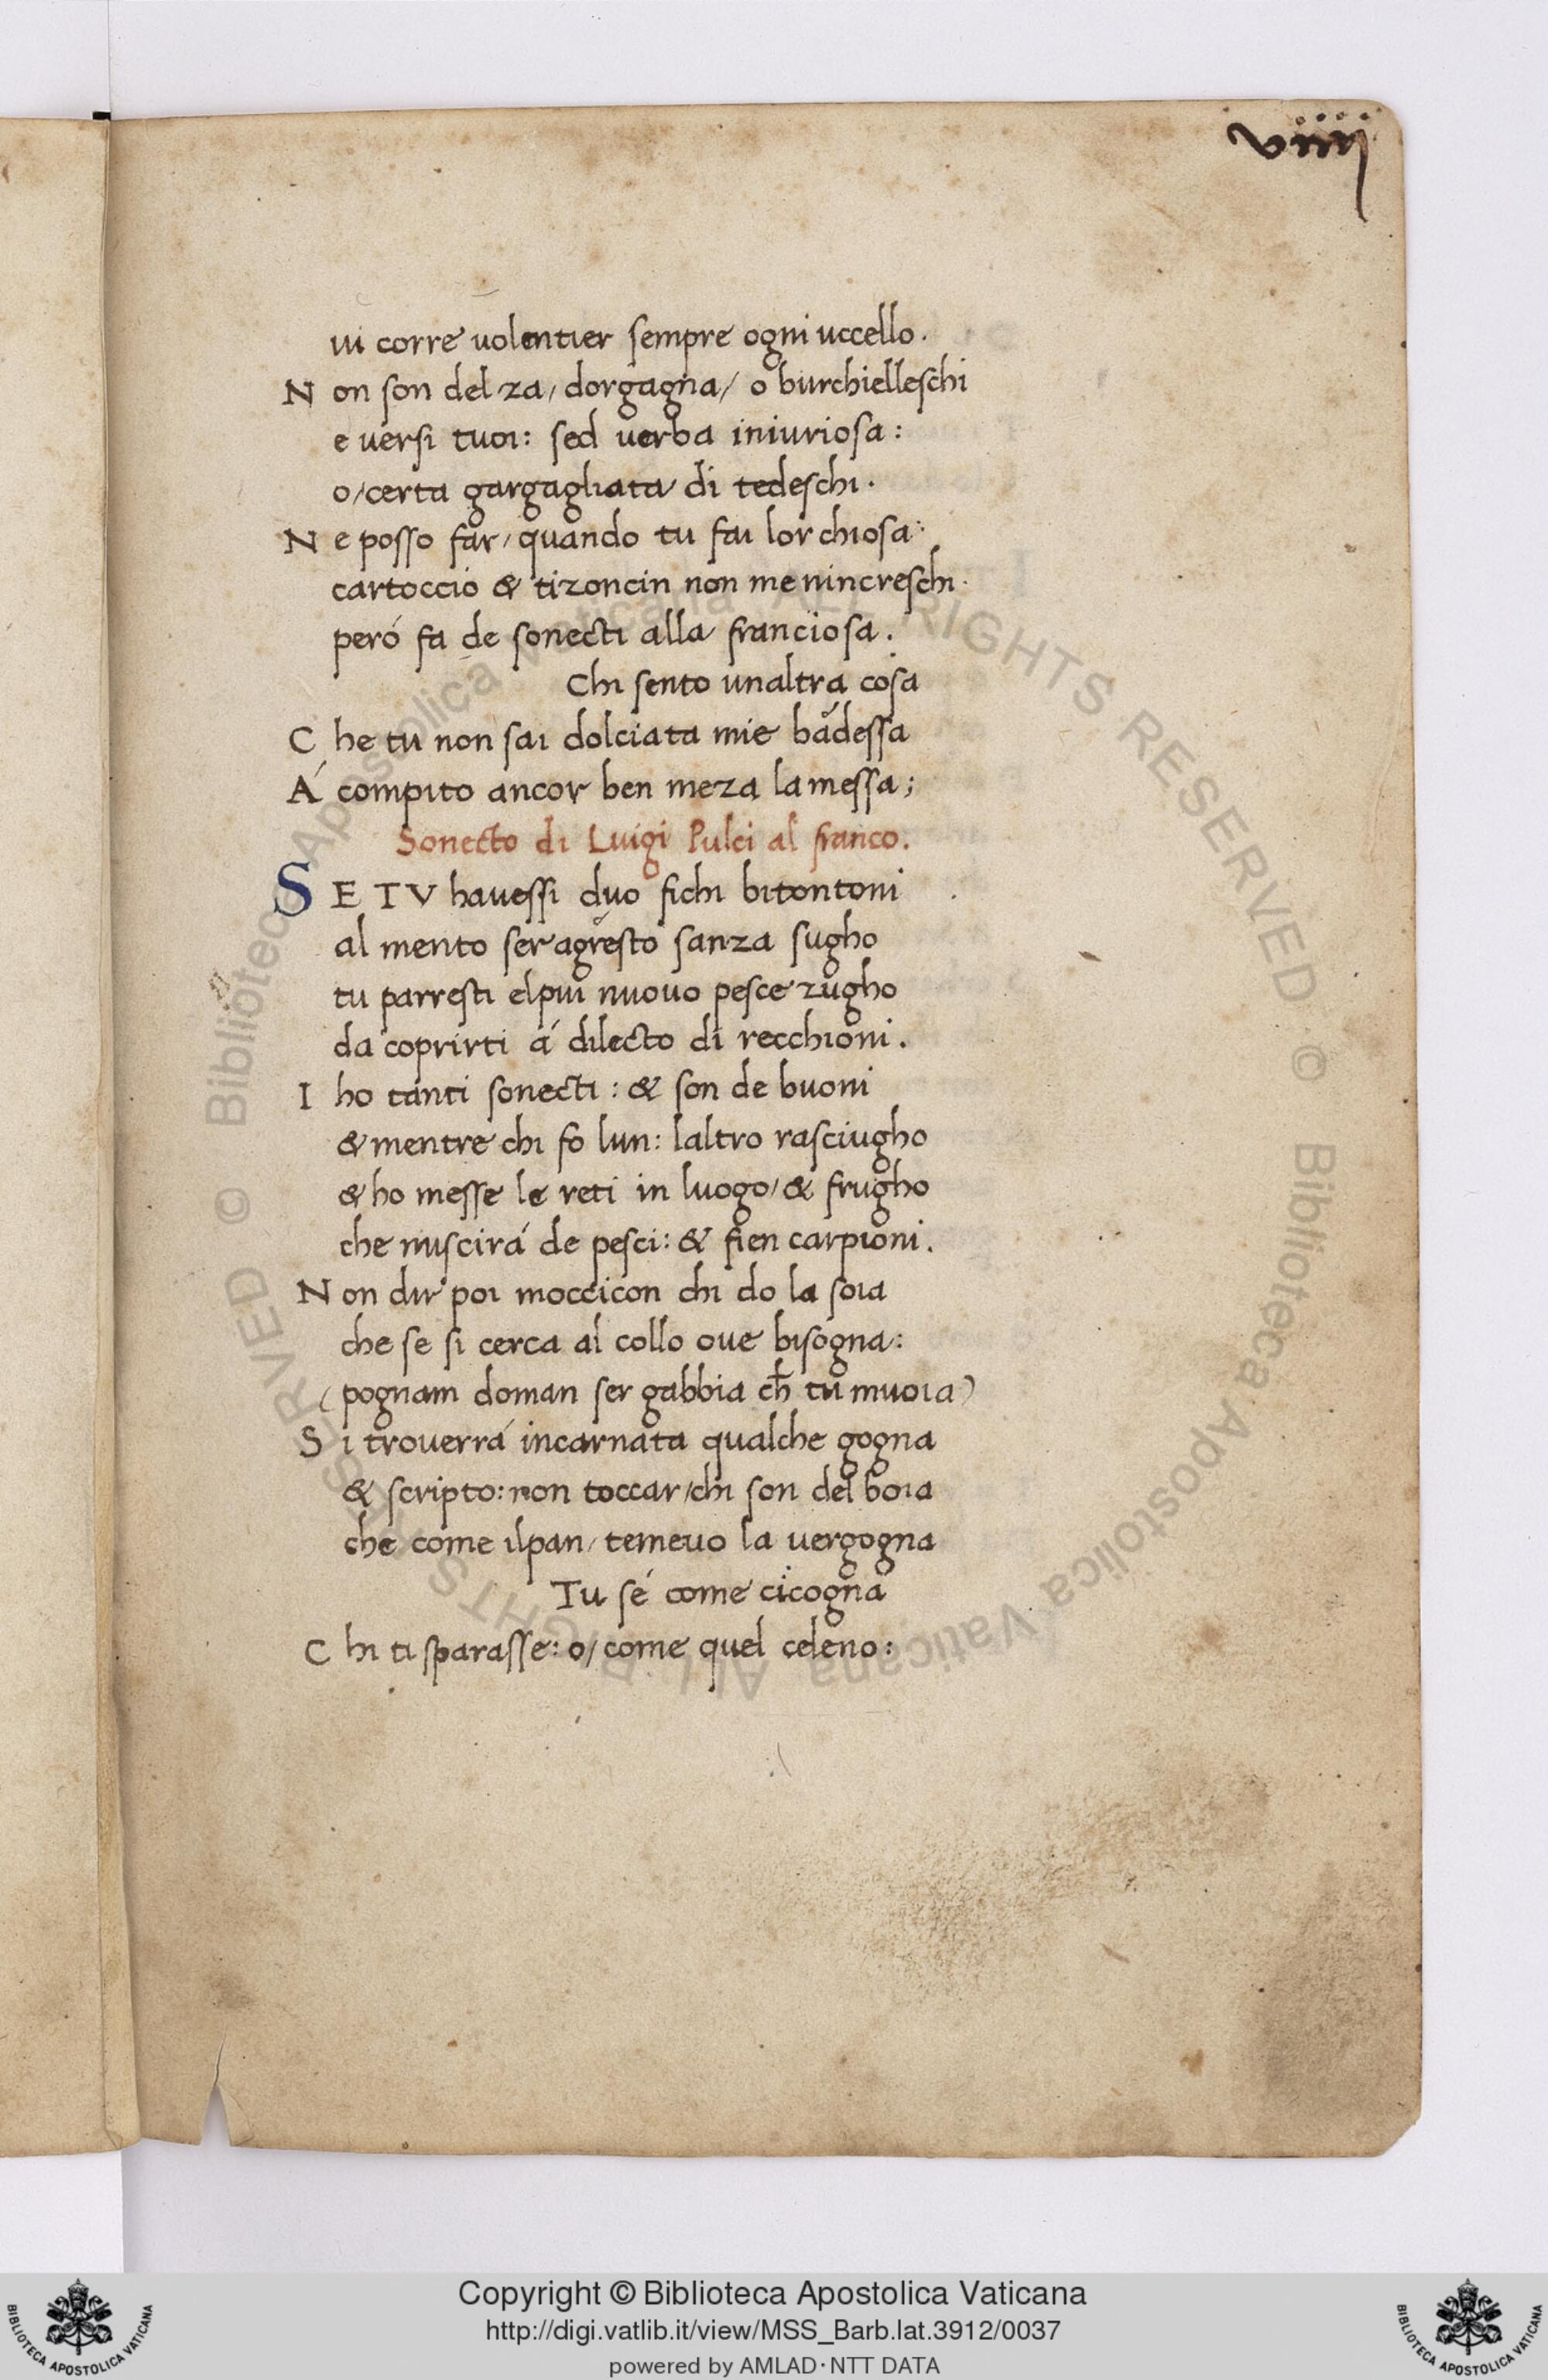 viiij
ui corre uolentier sempre ogni uccello.
N on son del za/ dorgagna/ o burchielleschi
e uersi tuoi: sed uerba iniuriosa:
o/certa gargagliata di tedeschi.
N e posso far/ quando tu fai lor chiosa:
cartoccio & tizoncin non me nincreschi.
peró fa de sonecti alla franciosa.
Chi sento unaltra cosa
C he tu non sai dolciata mie badessa
Á compito ancor ben meza la messa;
Sonecto di Luigi Pulci al franco.
S E TV hauessi duo fichi bitontoni
al mento ser agresto sanza sugho
tu parresti elpiu nuouo pesce zugho
da coprirti á dilecto di recchioni.
I ho tanti sonecti: & son de buoni
& mentre chi fo lun: laltro rasciugho
& ho messe le reti in luogo/ & frugho
che nuscirá de pesci: & fien carpioni.
N on dir poi moccicon chi do la soia
che se si cerca al collo oue bisogna:
(pognam doman ser gabbia ch̄ tu muoia)
S i trouerrá incarnata qualche gogna
& scripto: non toccar/chi son del boia
che come ilpan/ temeuo la vergogna
Tu sé come cicogna
C hi ti sparasse: o/ come quel celeno:
Copyright © Biblioteca Apostolica Vaticana
http://digi.vatlib.it/view/MSS_Barb.lat.3912/0037
powered by AMLAD·NTT DATA
BIBLIOTECA APOSTOLICA VATICANA
BIBLIOTECA APOSTOLICA VATICANA
© Biblioteca Apostolica Vaticana ALL RIGHTS RESERVED © Biblioteca Apostolica Vaticana ALL RIGHTS RESERVED